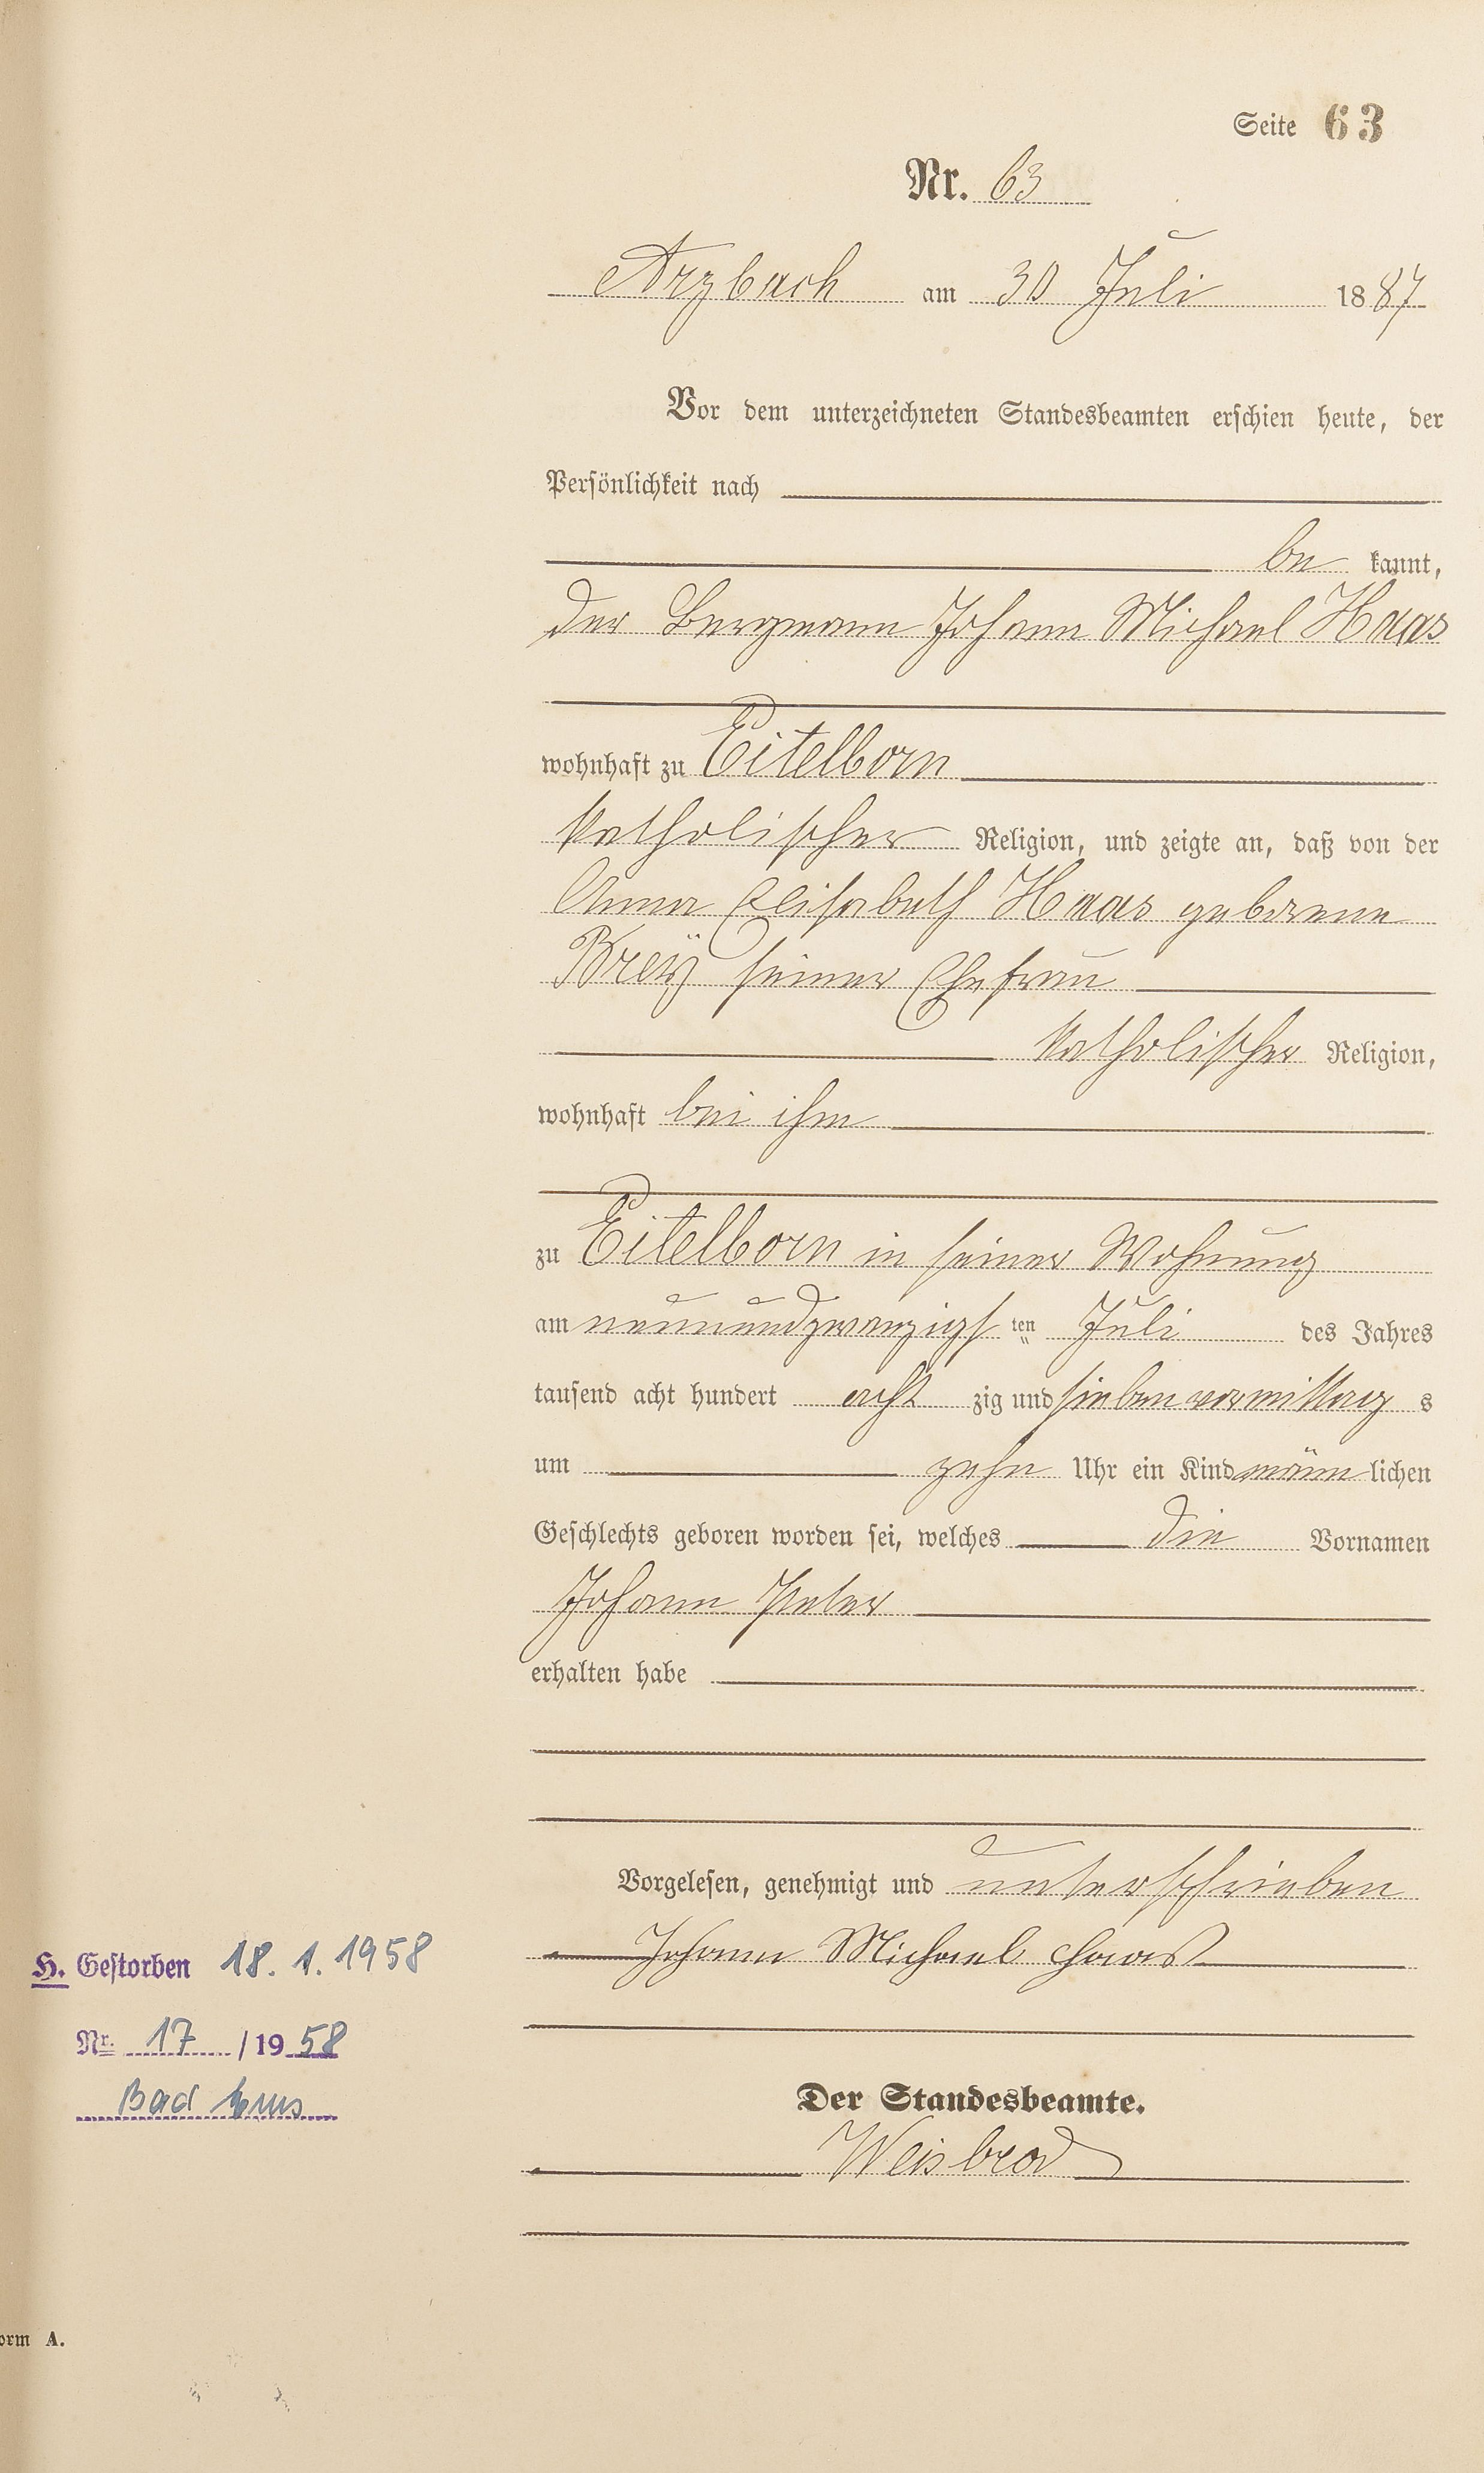 Seite 63
Nr. 63
Arzbach am 30 Juli 1887
Vor dem unterzeichneten Standesbeamten erschien heute, der
Persönlichkeit nach
be kannt,
der Bergmann Johann Michael Haas
wohnhaft zu Eitelborn
katholischer Religion, und zeigte an, daß von der
Anna Elisabeth Haas geborene
Breÿ seiner Ehefrau
katholischer Religion,
wohnhaft bei ihm
zu Eitelborn in seiner Wohnung
am neunundzwanzigs ten Juli des Jahres
tausend acht hundert acht zig und sieben vormittag s
um zehn Uhr ein Kind männ lichen
Geschlechts geboren worden sei, welches die Vornamen
Johann Peter
erhalten habe
Vorgelesen, genehmigt und unterschrieben
Johann Michael Haas
H. Gestorben 18. 1. 1958
Nr. 17 / 1958
Bad Ems
Der Standesbeamte.
Weisbrod
orm A.